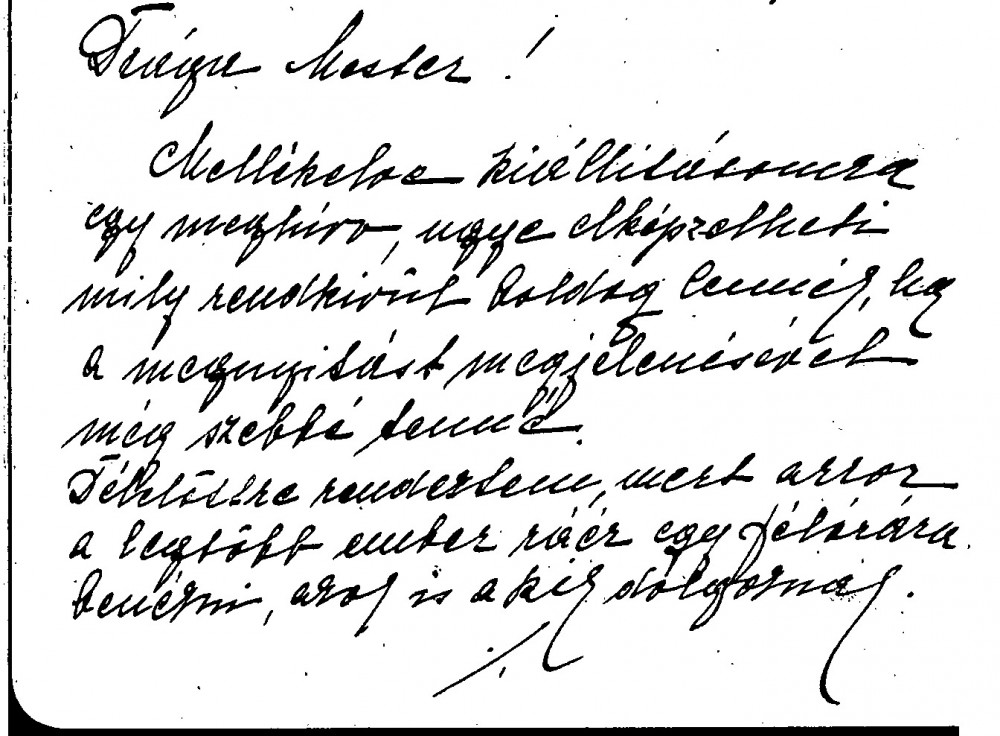 Drága Mester!
Mellékelve kiállításomra
egy meghívó, ugye elképzelheti
mily rendkívül boldog lennék, ha
a megnyitást megjelenésével
még szebbé tenné.
Délelőttre rendeztem, mert akkor
a legtöbb ember ráér egy félórára
benézni, azok is a kik dolgoznak.
./.